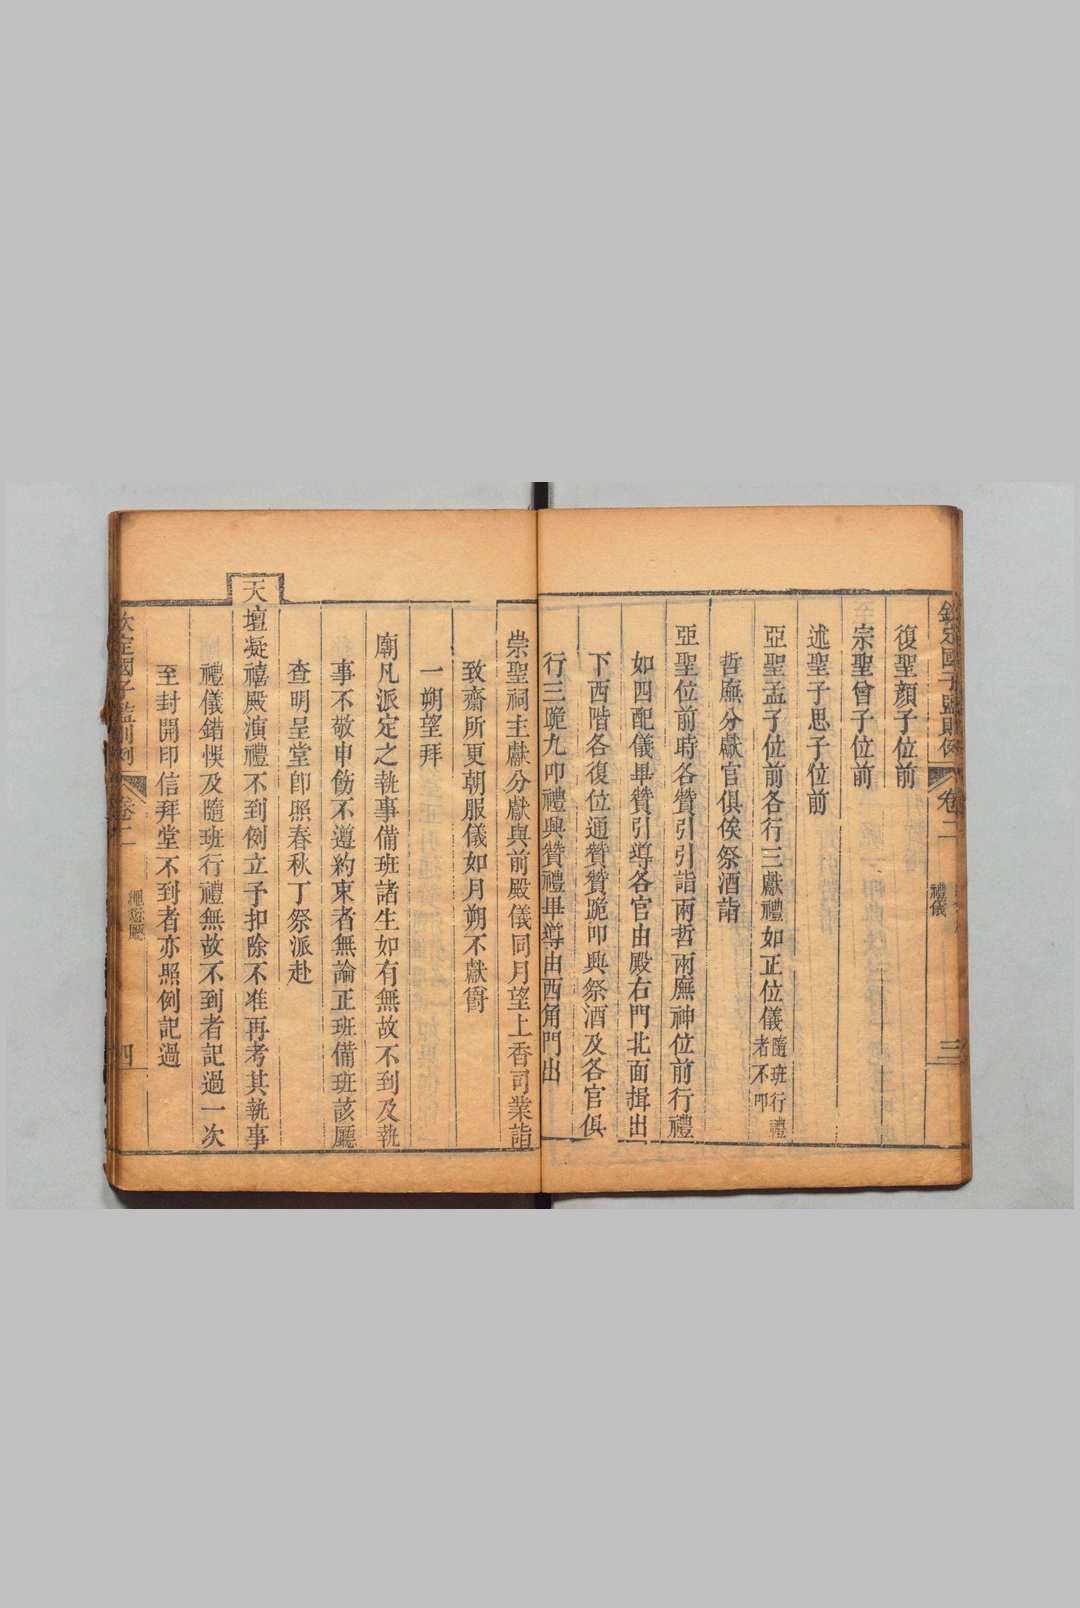 欽定國子監則例
卷二
禮儀
三
復聖顏子位前
宗聖曾子位前
述聖子思子位前
亞聖孟子位前各行三獻禮如正位儀隨班行禮者不叩
哲廡分獻官俱俟祭酒詣
亞聖位前時各贊引引詣兩哲兩廡神位前行禮
如四配儀畢贊引導各官由殿右門北面揖出
下西階各復位通贊贊跪叩興祭酒及各官俱
行三跪九叩禮興贊禮畢導由西角門出
崇聖祠主獻分獻與前殿儀同月望上香司業詣
致齋所更朝服儀如月朔不獻爵
一朔望拜
廟凡派定之執事備班諸生如有無故不到及執
事不敬申飭不遵約束者無論正班備班該廳
查明呈堂卽照春秋丁祭派赴
天壇凝禧殿演禮不到例立予扣除不准再考其執事
禮儀錯悞及隨班行禮無故不到者記過一次
至封開印信拜堂不到者亦照例記過
欽定國子監則例
卷二
繩愆廳
四